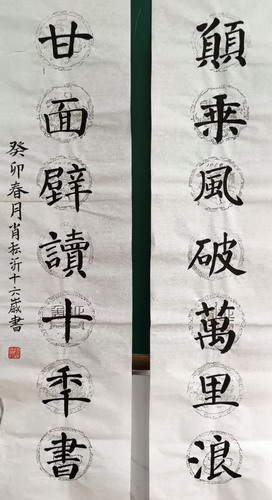 願乘風破萬里浪
甘面壁讀十年書
癸卯春月肖耘沂十六歲書